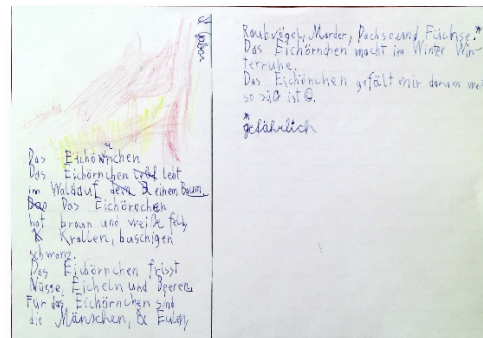 Das Eichörnchen
Das Eichörnchen lebt lebt
im Wald auf dem B einem Baum
Das Das Eichörnchen
hat braun und weiße fell,
K Krallen, buschigen
schwanz.
Das Eichörnchen frisst
Nüsse, Eicheln und Beeren,
Für das Eichörnchen sind
die Mänschen, & Eulen,
Raubvögel, Marder, Dachse und Füchse.*
Das Eichörnchen macht im Winter Win-
terruhe.
Das Eichörnchen gefällt mir darum weil
so süß ist ☺.
*
gefährlich